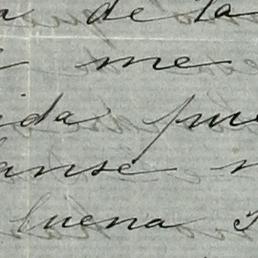 a de la
me
ida pue
anse n
buena